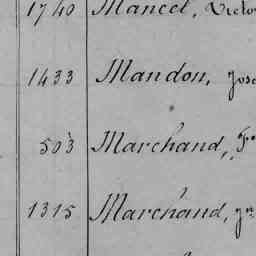 1740 Mancel, Victo
1433 Mandon, Jose
503 Marchand, Fra
1315 Marchand,